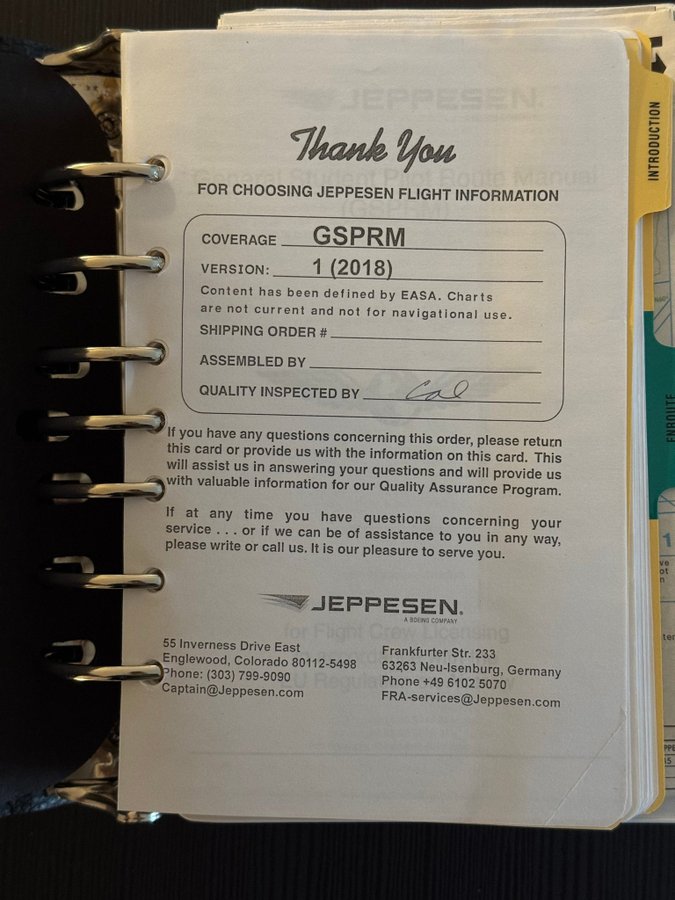 Thank You
FOR CHOOSING JEPPESEN FLIGHT INFORMATION
COVERAGE GSPRM
VERSION: 1 (2018)
Content has been defined by EASA. Charts
are not current and not for navigational use.
SHIPPING ORDER #
ASSEMBLED BY
QUALITY INSPECTED BY Cal
If you have any questions concerning this order, please return
this card or provide us with the information on this card. This
will assist us in answering your questions and will provide us
with valuable information for our Quality Assurance Program.
If at any time you have questions concerning your
service . . . or if we can be of assistance to you in any way,
please write or call us. It is our pleasure to serve you.
JEPPESEN.
A BOEING COMPANY
55 Inverness Drive East
Englewood, Colorado 80112-5498
Phone: (303) 799-9090
Captain@Jeppesen.com
Frankfurter Str. 233
63263 Neu-Isenburg, Germany
Phone +49 6102 5070
FRA-services@Jeppesen.com
INTRODUCTION
ENROUTE
1
JEPPESEN.
General Student Pilot Route Manual
(GSPRM)
for Flight Crew Licensing